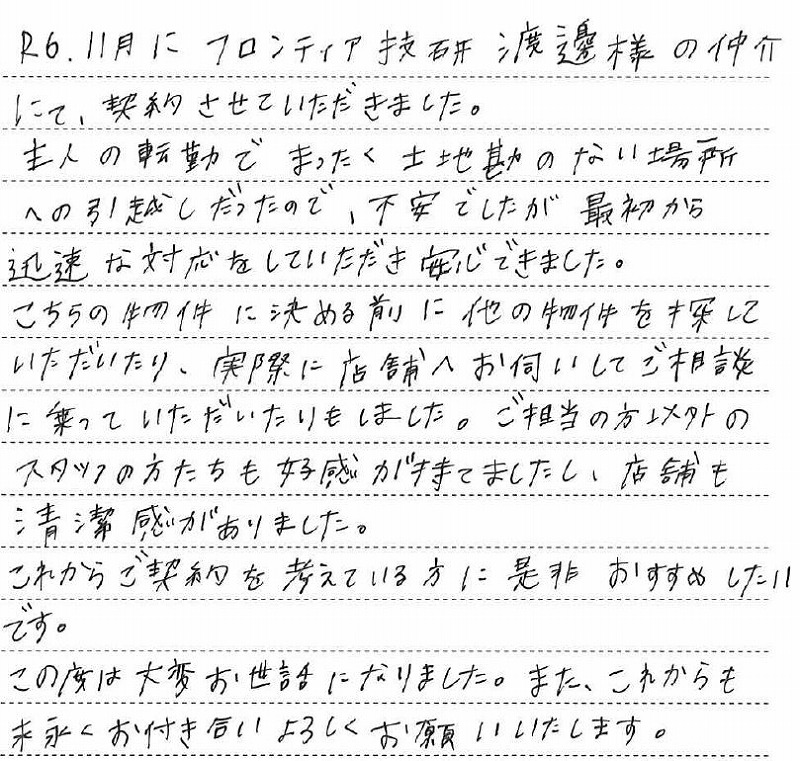 R6.11月に フロンティア技研 渡邊様の仲介
にて、契約させていただきました。
主人の転勤で まったく土地勘のない場所
への引越しだったので、不安でしたが 最初から
迅速な対応をしていただき安心できました。
こちらの物件に決める前に他の物件を探して
いただいたり、実際に店舗へお伺いしてご相談
に乗っていただいたりもしました。ご担当の方以外の
スタッフの方たちも好感が持てましたし、店舗も
清潔感がありました。
これからご契約を考えている方に是非おすすめしたい
です。
この度は大変お世話になりました。また、これからも
末永くお付き合いよろしくお願いいたします。